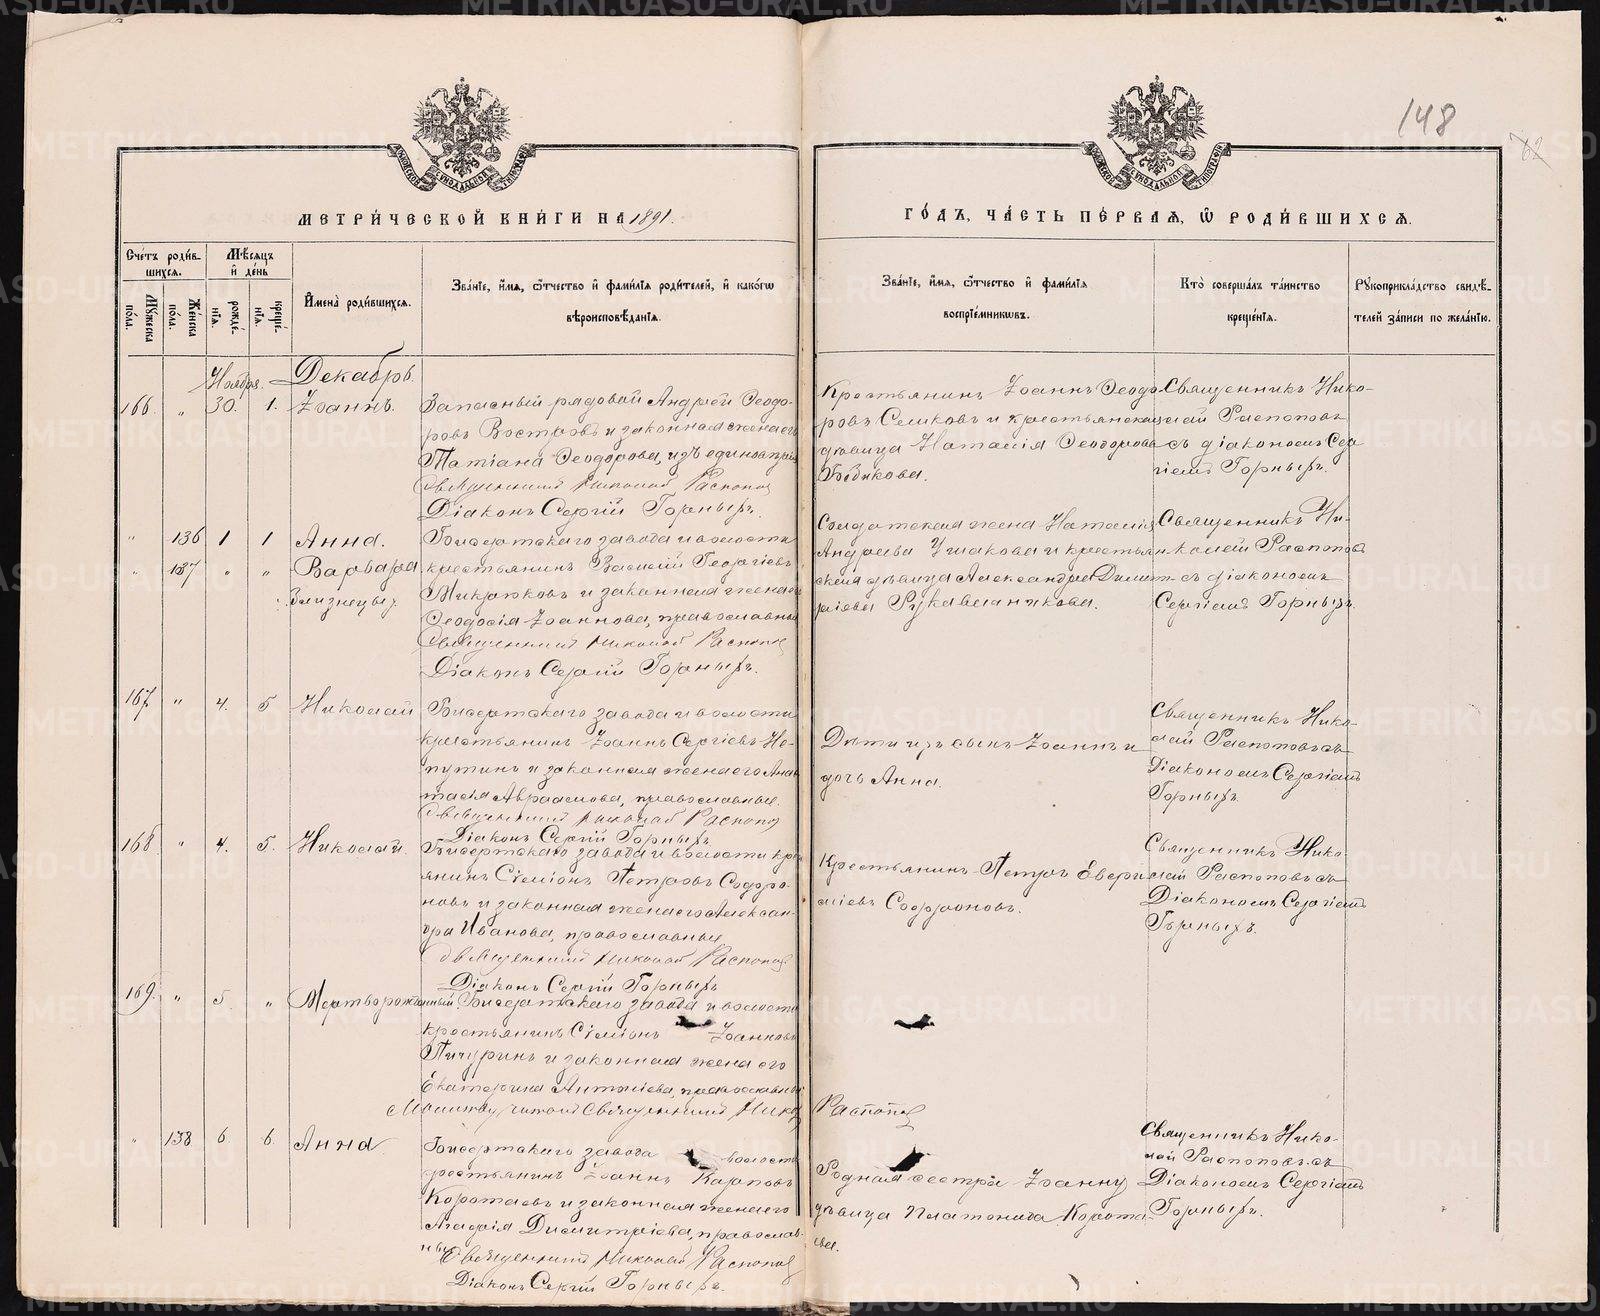 148
62
МЕТРИ́ЧЕСКОЙ КНИ́ГИ НА 1891.
ГО́ДЪ, ЧА́СТЬ ПЕ́РВАЯ, Ѽ РОДИ́ВШИХСЯ.
Сче́тъ роди́в-
шихся.
Мѣ́сяцъ
и҆ де́нь
Мꙋжеска
пола.
Же́нска
пола.
рожде́-
нїя.
креще́-
нїя.
И҆мена̀ роди́вшихся.
Зва́нїе, и҆́мя, ѻ҆́тчество и҆ фами́лїя роди́телей, и҆ како́гѡ
вѣроисповѣ́данїя.
Зва́нїе, и҆́мя, ѻ҆́тчество и҆ фами́лїя
воспрїе́мникѡвъ.
Кто̀ соверша́лъ та́инство
креще́нїя.
Рꙋкоприкла́дство свидѣ́-
телей за́писи по жела́нїю.
Ноября. Декабрь.
166 " 30. 1. Іоаннъ.
Запасный рядовой Андрей Ѳеодо-
ровъ Востровъ и законная жена его
Татіана Ѳеодорова,
Священникъ Николай Распопов
Діаконъ Сергій Горныхъ.
Крестьянинъ Іоаннъ Ѳеодо-
ровъ и крестьянская
дѣвица Наталія Ѳеодорова
Бабикова.
Священникъ Нико-
лай Распоповъ
съ діакономъ Сер-
гіемъ Горныхъ.
" 136 1 1 Анна.
" 137 " " Варвара
Близнецы.
Бисертскаго завода и волости
крестьянинъ Василій Георгіевъ
и законная жена его
Ѳеодосія Іоаннова, православные
Священникъ Николай Распопов
Діаконъ Сергій Горныхъ.
Солдатская жена Наталія
Андреева Ушакова и крестьян-
ская дѣвица Александра Димит-
ріева Рукавишникова.
Священникъ Ни-
колай Распоповъ
съ діакономъ
Сергіемъ Горныхъ.
167 " 4. 5 Николай
Бисертскаго завода и волости
крестьянинъ Іоаннъ Сергіевъ
и законная жена его Анас-
тасія Авраамова, православные.
Священникъ Николай Распопов
Діаконъ Сергій Горныхъ
Дѣти ихъ сынъ Іоаннъ и
дочь Анна.
Священникъ Нико-
лай Распоповъ съ
Діакономъ Сергіемъ
Горныхъ.
168 " 4. 5. Николай.
Бисертскаго завода и волости крес-
янинъ Сѵмеонъ Петровъ Софро-
новъ и законная жена его Алексан-
дра Иванова, православные
Священникъ Николай Распопов
Діаконъ Сергій Горныхъ
Крестьянинъ Петръ
Софроновъ.
Священникъ Нико-
лай Распоповъ съ
Діакономъ Сергіемъ
Горныхъ.
169. " 5 " Мертворожденный.
Бисертскаго завода и волости
крестьянинъ Сѵмеонъ Іоанновъ
Пичугинъ и законная жена его
Екатерина православные
Молитву читалъ Священникъ Никол. Распопов
" 138 6. 6. Анна
Бисертскаго завода волости
крестьянинъ Іоаннъ Карповъ
Коротаевъ и законная жена его
Агафія Димитріева, православ-
ные
Священникъ Николай Распопов
Діаконъ Сергій Горныхъ.
Родная сестра Іоанну
дѣвица Платонида Корота-
ева.
Священникъ Нико-
лай Распоповъ съ
Діакономъ Сергіемъ
Горныхъ.